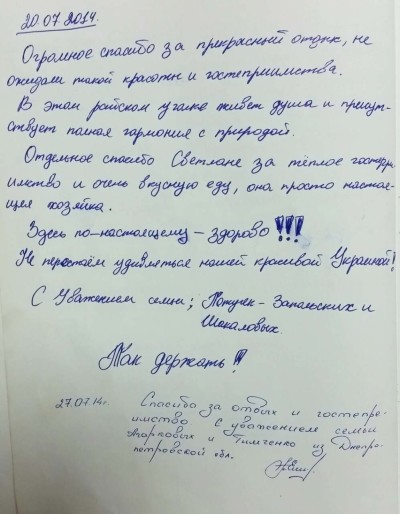 20.07.2014.
Огромное спасибо за прекрасный отдых, не
ожидали такой красоты и гостеприимства.
В этом райском уголке живёт душа и присут-
ствует полная гармония с природой.
Отдельное спасибо Светлане за тёплое гостепри-
имство и очень вкусную еду, она просто настоя-
щая хозяйка.
Здесь по-настоящему – здорово!!!
Не перестаём удивляться нашей красивой Украиной!
С Уважением семьи; Запальских и
Шокаловых.
Так держать!
27.07.14г. Спасибо за отдых и гостепре-
имство. С уважением семьи
и Тимченко из Днепро-
петровской обл.